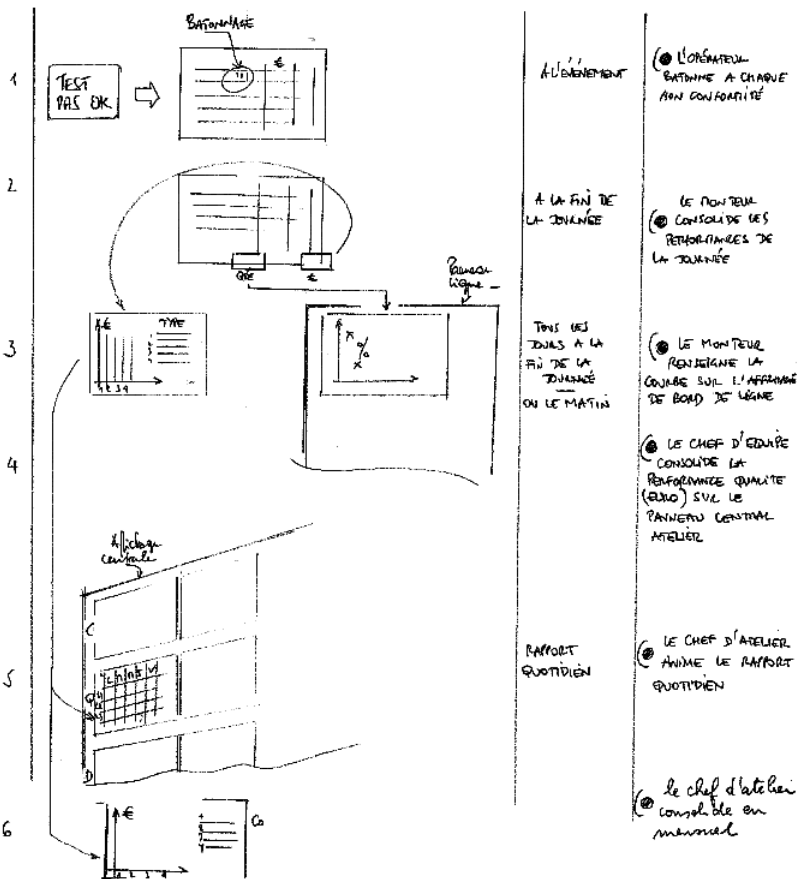 BATONNAGE
1
TEST
PAS OK
€
A L'ÉVÉNEMENT
L'OPÉRATEUR
BATONNE A CHAQUE
NON CONFORMITÉ
2
QTÉ
€
A LA FIN DE
LA JOURNÉE
LE MONTEUR
CONSOLIDE LES
PERFORMANCES DE
LA JOURNÉE
Panneau
ligne
3
€
TYPE
1 2 3 4
%
TOUS LES
JOURS A LA
FIN DE LA
JOURNÉE
OU LE MATIN
LE MONTEUR
RENSEIGNE LA
COURBE SUR L'AFFICHAGE
DE BORD DE LIGNE
4
LE CHEF D'EQUIPE
CONSOLIDE LA
PERFORMANCE QUALITE
(EURO) SUR LE
PANNEAU CENTRAL
ATELIER
Affichage
centrale
C
5
L M M J V
Q
D
RAPPORT
QUOTIDIEN
LE CHEF D'ATELIER
ANIME LE RAPPORT
QUOTIDIEN
6
€
1 2 3 4
1
2
3
4
Co
le chef d'atelier
consolide en
mensuel